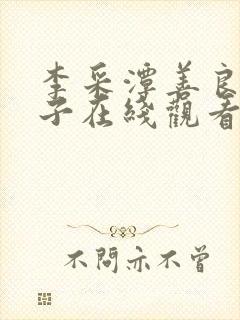 李采潭善良
子在綫觀看
不問亦不曾